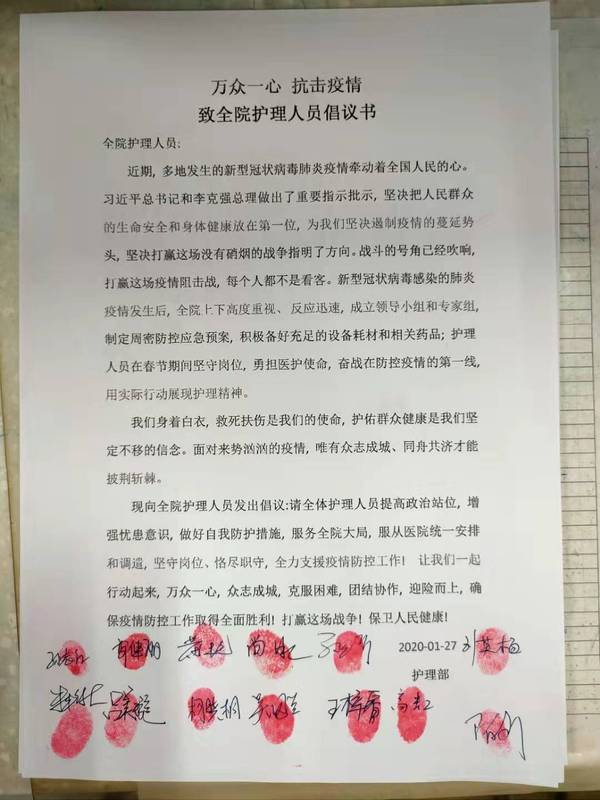 万众一心 抗击疫情
致全院护理人员倡议书
全院护理人员:
近期, 多地发生的新型冠状病毒肺炎疫情牵动着全国人民的心。
习近平总书记和李克强总理做出了重要指示批示, 坚决把人民群众
的生命安全和身体健康放在第一位, 为我们坚决遏制疫情的蔓延势
头, 坚决打赢这场没有硝烟的战争指明了方向。战斗的号角已经吹响,
打赢这场疫情阻击战, 每个人都不是看客。新型冠状病毒感染的肺炎
疫情发生后, 全院上下高度重视、 反应迅速, 成立领导小组和专家组,
制定周密防控应急预案, 积极备好充足的设备耗材和相关药品; 护理
人员在春节期间坚守岗位, 勇担医护使命, 奋战在防控疫情的第一线,
用实际行动展现护理精神。
我们身着白衣, 救死扶伤是我们的使命, 护佑群众健康是我们坚
定不移的信念。面对来势汹汹的疫情, 唯有众志成城、同舟共济才能
披荆斩棘。
现向全院护理人员发出倡议:请全体护理人员提高政治站位, 增
强忧患意识, 做好自我防护措施, 服务全院大局, 服从医院统一安排
和调遣, 坚守岗位、恪尽职守, 全力支援疫情防控工作! 让我们一起
行动起来, 万众一心, 众志成城, 克服困难, 团结协作, 迎险而上, 确
保疫情防控工作取得全面胜利! 打赢这场战争! 保卫人民健康!
2020-01-27
护理部